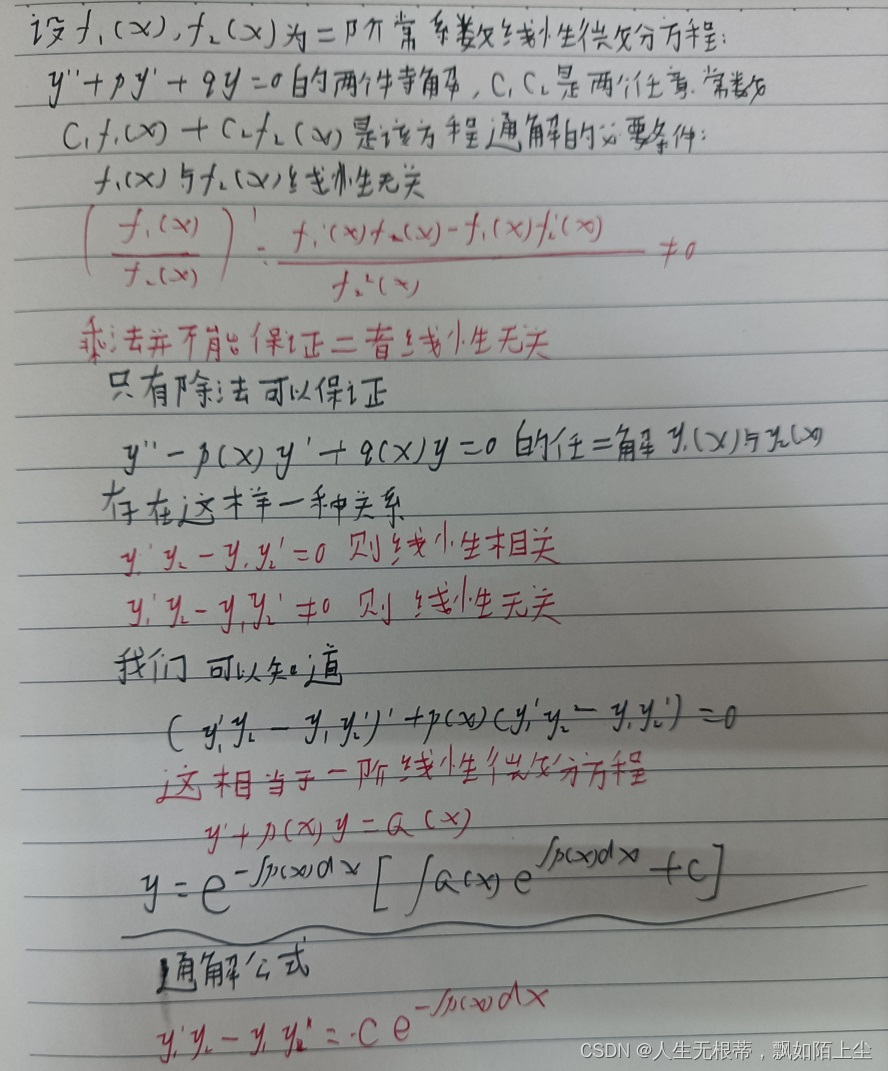 设f₁(x),f₂(x)为二阶常系数线性微分方程:
y''+py'+qy=0的两个特解,C₁C₂是两个任意常数
C₁f₁(x)+C₂f₂(x)是该方程通解的必要条件:
f₁(x)与f₂(x)线性无关
(f₁(x)/f₂(x))' = (f₁'(x)f₂(x)-f₁(x)f₂'(x))/f₂²(x) ≠0
乘法并不能保证二者线性无关
只有除法可以保证
y''-p(x)y'+q(x)y=0的任二解y₁(x)与y₂(x)
存在这样一种关系
y₁'y₂-y₁y₂'=0 则线性相关
y₁'y₂-y₁y₂'≠0 则线性无关
我们可以知道
(y₁'y₂-y₁y₂')'+p(x)(y₁'y₂-y₁y₂')=0
这相当于一阶线性微分方程
y'+p(x)y=Q(x)
y=e^{-∫p(x)dx}[∫Q(x)e^{∫p(x)dx}+C]
通解公式
y₁'y₂-y₁y₂'=·Ce^{-∫p(x)dx}
CSDN @人生无根蒂,飘如陌上尘